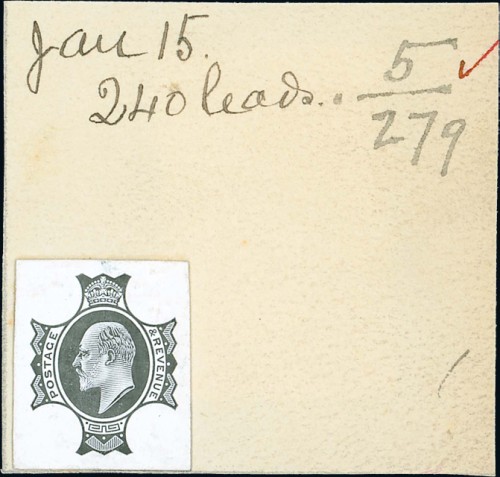 Jan 15.
240 leads.. 5/279
POSTAGE & REVENUE